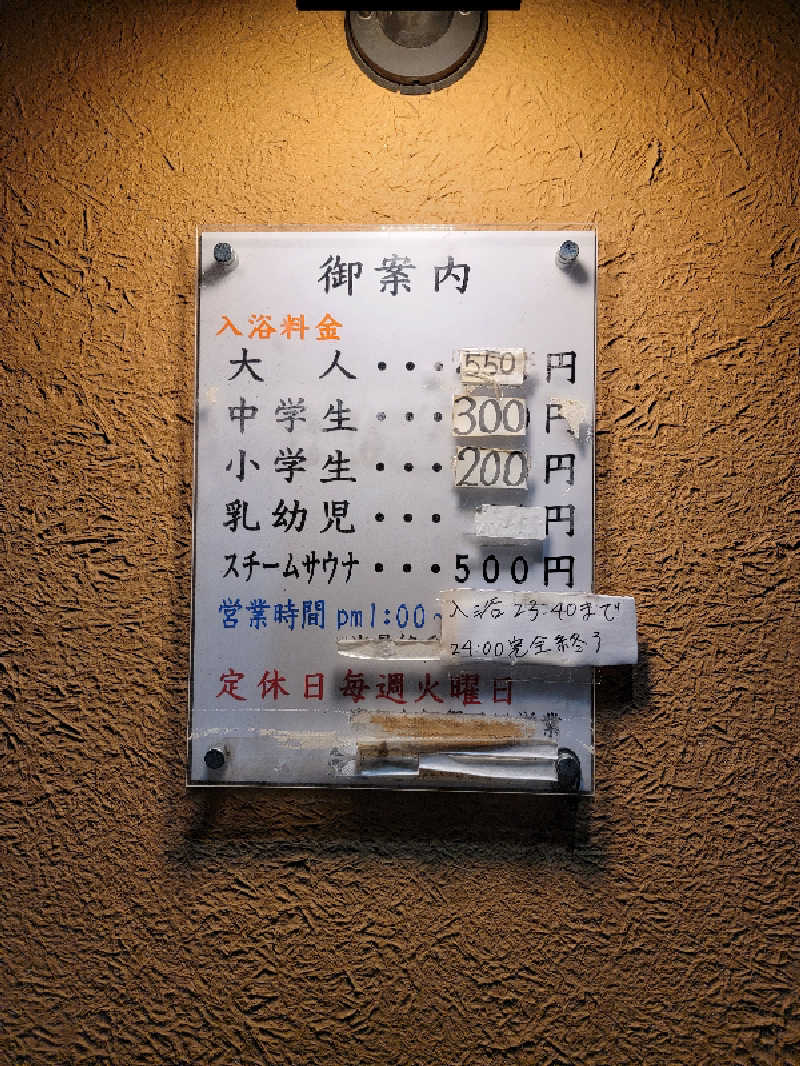 御案内
入浴料金
大人・・・550円
中学生・・・300円
小学生・・・200円
乳幼児・・・円
スチームサウナ・・・500円
営業時間 pm1:00~
入浴 23:40まで
24:00完全終了
定休日毎週火曜日
業